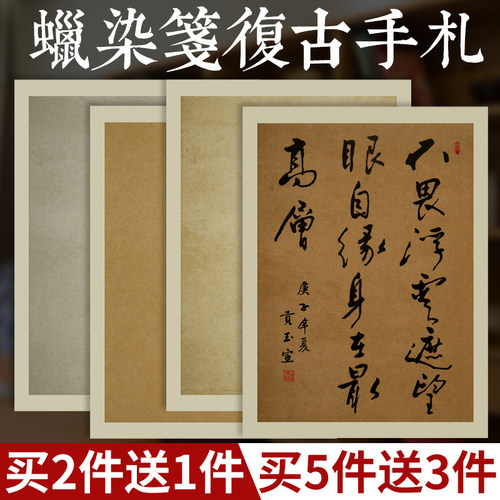 蠟染箋復古手札
不畏浮雲遮望
眼自缘身在最
高層
庚子年夏
贡玉宣
买2件送1件
买5件送3件